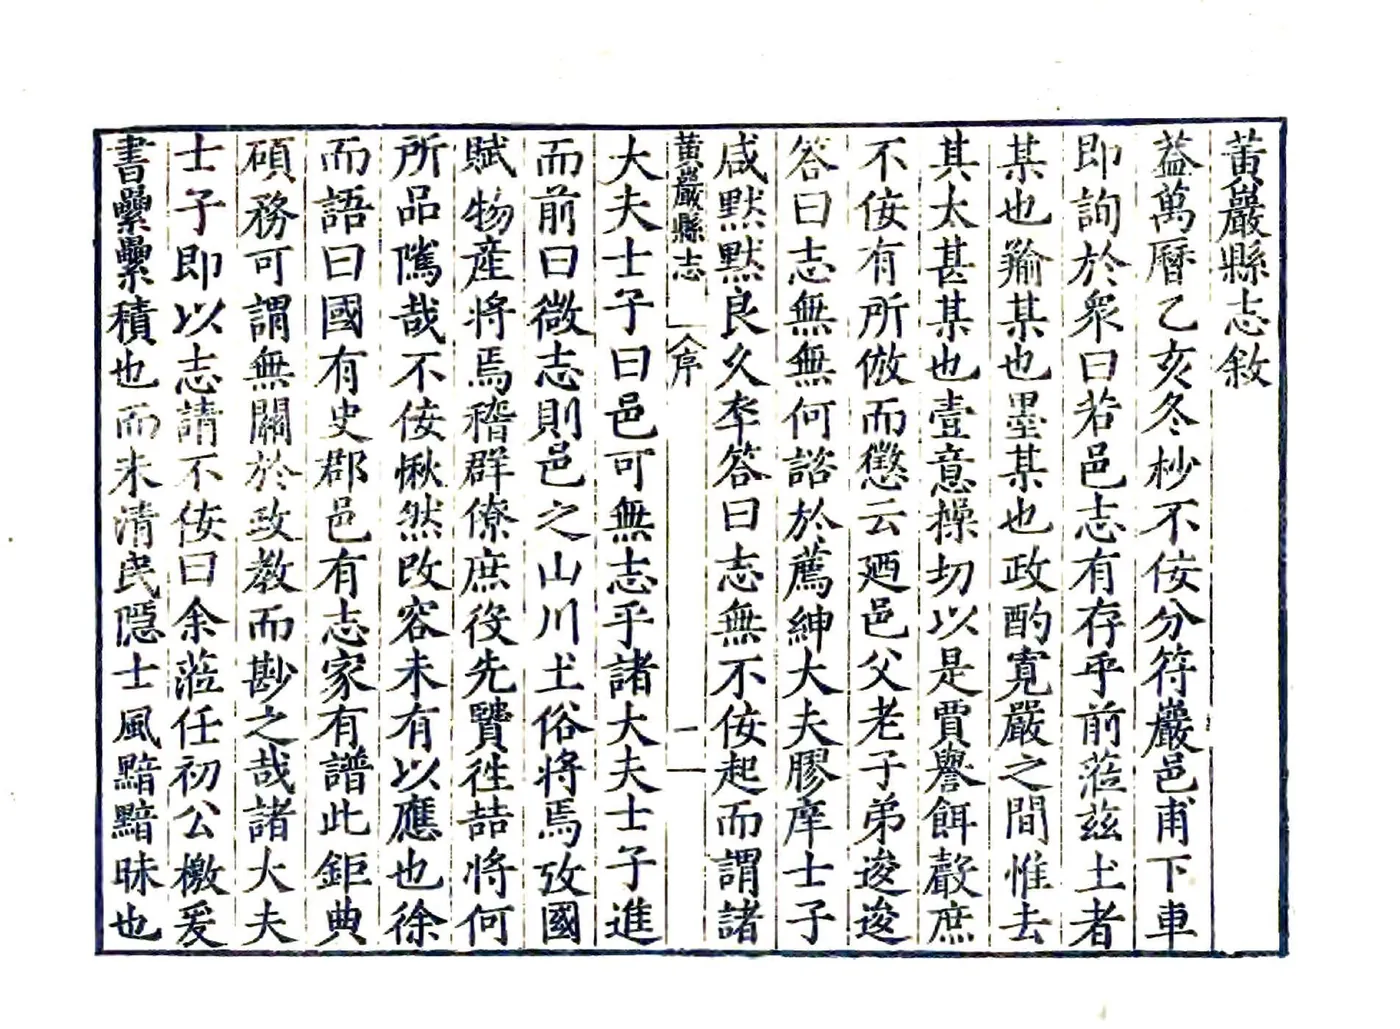 黃巖縣志敘
葢萬曆乙亥冬杪不佞分符巖邑甫下車
即詢於衆曰若邑志有存乎前蒞茲土者
某也羭某也墨某也政酌寬嚴之間惟去
其太甚某也壹意操切以是賈譽餌聲庶
不佞有所倣而懲云廼邑父老子弟逡逡
答曰志無無何諮於薦紳大夫膠庠士子
咸默默良久率答曰志無不佞起而謂諸
黃巖縣志 序 一
大夫士子曰邑可無志乎諸大夫士子進
而前曰微志則邑之山川土俗將焉攷國
賦物產將焉稽群僚庶役先賢徃喆將何
所品隲哉不佞愀然改容未有以應也徐
而語曰國有史郡邑有志家有譜此鉅典
碩務可謂無關於政教而尠之哉諸大夫
士子即以志請不佞曰余蒞任初公檄爰
書纍纍積也而未清民隱士風黯黯昧也